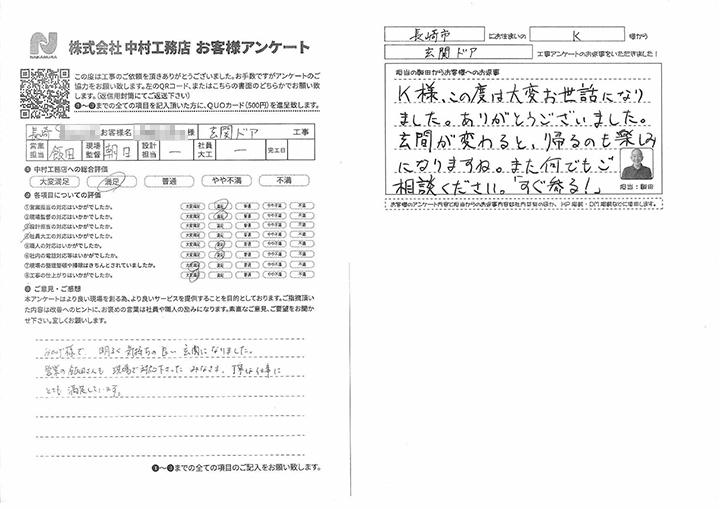 NAKAMURA
株式会社 中村工務店 お客様アンケート
この度は工事のご依頼を頂きありがとうございました。お手数ですがアンケートのご
協力をお願い致します。左のQRコード、またはこちらの書面のどちらかでお願い致
します。(返信用封筒にてご返送下さい)
❶~❸までの全ての項目を記入頂いた方に、QUOカード(500円)を進呈致します。
長崎 お客様名 様 玄関ドア 工事
営業担当 飯田 現場監督 朝日 設計担当 ー 社員大工 ー 完工日
❶ 中村工務店への総合評価
大変満足 満足 普通 やや不満 不満
❷ 各項目についての評価
①営業担当の対応はいかがでしたか。 大変満足 満足 普通 やや不満 不満
②現場監督の対応はいかがでしたか。 大変満足 満足 普通 やや不満 不満
③設計担当の対応はいかがでしたか。 大変満足 満足 普通 やや不満 不満
④社員大工の対応はいかがでしたか。 大変満足 満足 普通 やや不満 不満
⑤職人の対応はいかがでしたか。 大変満足 満足 普通 やや不満 不満
⑥社内の電話対応等はいかがでしたか。 大変満足 満足 普通 やや不満 不満
⑦現場の整理整頓や掃除はきちんとされていましたか。 大変満足 満足 普通 やや不満 不満
⑧工事の仕上がりはいかがでしたか。 大変満足 満足 普通 やや不満 不満
❸ ご意見・ご感想
本アンケートはより良い現場を創る為、より良いサービスを提供することを目的としております。ご指摘頂い
た内容は改善へのヒントに、お褒めの言葉は社員や職人の励みになります。素直なご意見、ご要望をお聞か
せ下さい。宜しくお願いします。
様で 明るく気持ちの良い玄関になりました。
営業の飯田さんも 現場で対応下さった みなさま、丁寧な仕事に
とても満足しています。
❶~❸までの全ての項目のご記入をお願い致します。
長崎市 にお住まいの K 様から
玄関ドア 工事アンケートのお返事をいただきました!
担当の飯田からお客様へのお返事
K様、この度は大変お世話になり
ました。ありがとうございました。
玄関が変わると、帰るのも楽しみ
になりますね。また何でもご
相談ください。「すぐ参る!」
担当:飯田